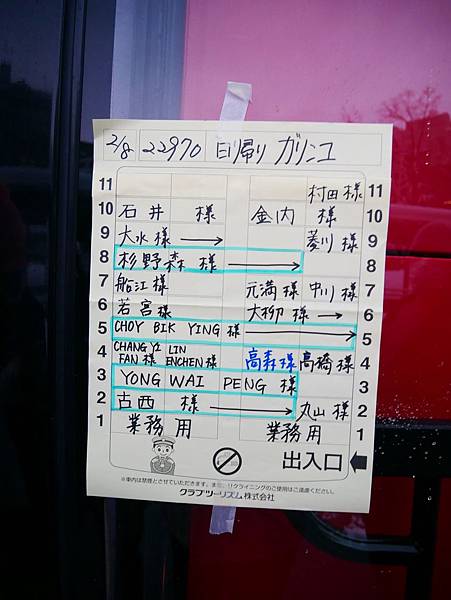 2/8 22970 日帰り ガリンコ
11 村田様 11
10 石井 様 金内 様 10
9 大水様 → 菱川様 9
8 杉野森 様 → 8
7 船江様 元満様 中川様 7
6 若宮様 大柳様 → 6
5 CHOY BIK YING 様 → 5
4 CHANG YI FAN 様 LIN ENCHEN 様 高森様 高橋様 4
3 YONG WAI PENG 様 3
2 古西 様 → 丸山様 2
1 業務用 業務用 1
出入口
※車内は禁煙とさせていただきます。また、リクライニングのご使用はご遠慮ください。
クラブツーリズム株式会社